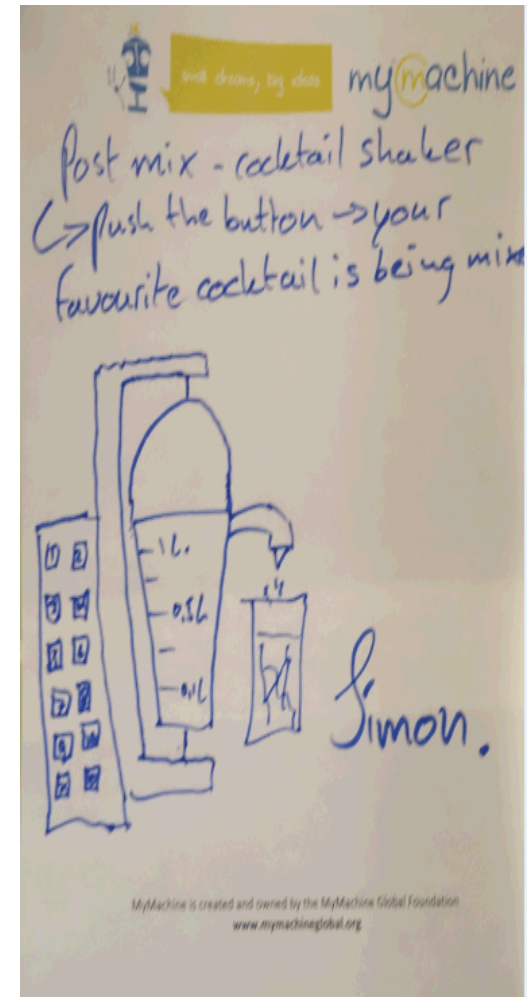 small dreams, big ideas
mymachine
Post mix - cocktail shaker
↳ push the button → your
favourite cocktail is being mixe
1L.
0,5L
0,1L
1 2
3 4
5 6
7 8
9 10
11 12
Simon.
MyMachine is created and owned by the MyMachine Global Foundation
www.mymachineglobal.org